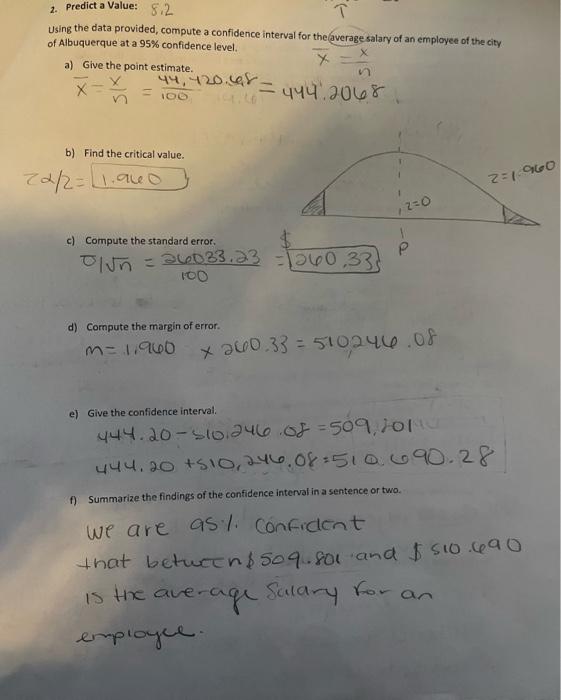 2. Predict a Value: 8.2
Using the data provided, compute a confidence interval for the average salary of an employee of the city
of Albuquerque at a 95% confidence level.
x̄ = x/n
a) Give the point estimate.
x̄ = x/n = 44,420.68/100 = 444.2068
b) Find the critical value.
zα/2 = 1.960
z=1.960
z=0
p
c) Compute the standard error.
σ/√n = 26033.23/100 = $260.33
d) Compute the margin of error.
m = 1.960 x 260.33 = 510246.08
e) Give the confidence interval.
444.20 - 510,246.08 = 509,801
444.20 + 510,246.08 = 510.690.28
f) Summarize the findings of the confidence interval in a sentence or two.
we are 95% confident
that between $509.801 and $510.690
is the average salary for an
employee.